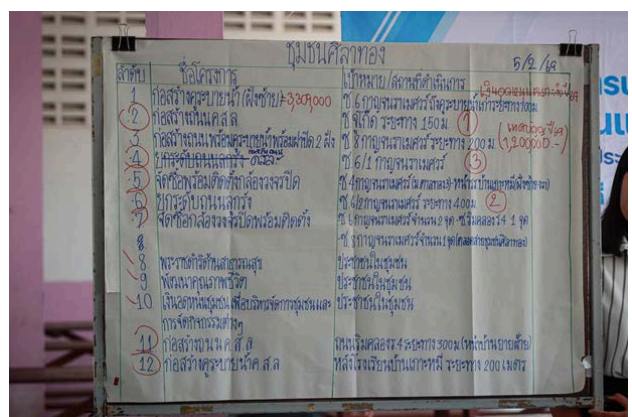 ชุมชนศิลาทอง 5/2/69
ลำดับ ชื่อโครงการ เป้าหมาย/สถานที่ดำเนินการ
1 ก่อสร้างคูระบายน้ำ (ฝั่งซ้าย) 3,309,000 ซ.6 กาญจนราเมศวร์
2 ก่อสร้างถนน ค.ส.ล. ระยะทาง 150 ม. 1
3 ก่อสร้างถนนพร้อมคูระบายน้ำพร้อมฝาปิด 2 ฝั่ง ซ.8 กาญจนราเมศวร์ ระยะทาง 200 ม. (1,200,000.-)
4 ยกระดับถนนลูกรัง ค.ส.ล. ซ.6/1 กาญจนราเมศวร์ 3
5 จัดซื้อพร้อมติดตั้งกล้องวงจรปิด ซ.4 กาญจนราเมศวร์
6 ยกระดับถนนลูกรัง ซ.6/2 กาญจนราเมศวร์ ระยะทาง 400 ม. 2
7 จัดซื้อกล้องวงจรปิดพร้อมติดตั้ง ซ.6 กาญจนราเมศวร์ จำนวน 2 จุด - ซ.ริมคลอง ร.4 1 จุด
- ซ.8 กาญจนราเมศวร์ จำนวน 1 จุด
8 พระราชดำริด้านสาธารณสุข ประชาชนในชุมชน
9 พัฒนาคุณภาพชีวิต ประชาชนในชุมชน
10 เงินอุดหนุนชุมชนเพื่อบริหารจัดการชุมชนและ ประชาชนในชุมชน
การจัดกิจกรรมต่างๆ
11 ก่อสร้างถนน ค.ส.ล ถนนริมคลอง ร.4 ระยะทาง 300 ม.
12 ก่อสร้างคูระบายน้ำ ค.ส.ล หลังโรงเรียนบ้านเกาะหมี ระยะทาง 200 เมตร